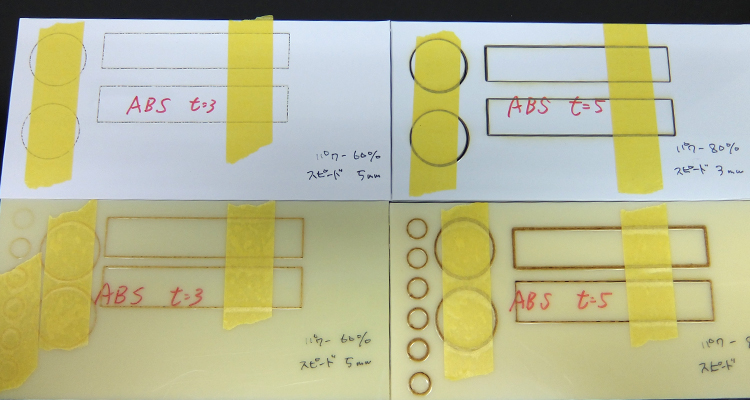 ABS t=3
パワー60%
スピード 5mm
ABS t=5
パワー80%
スピード 3mm
ABS t=3
パワー60%
スピード 5mm
ABS t=5
パワー8
スピード